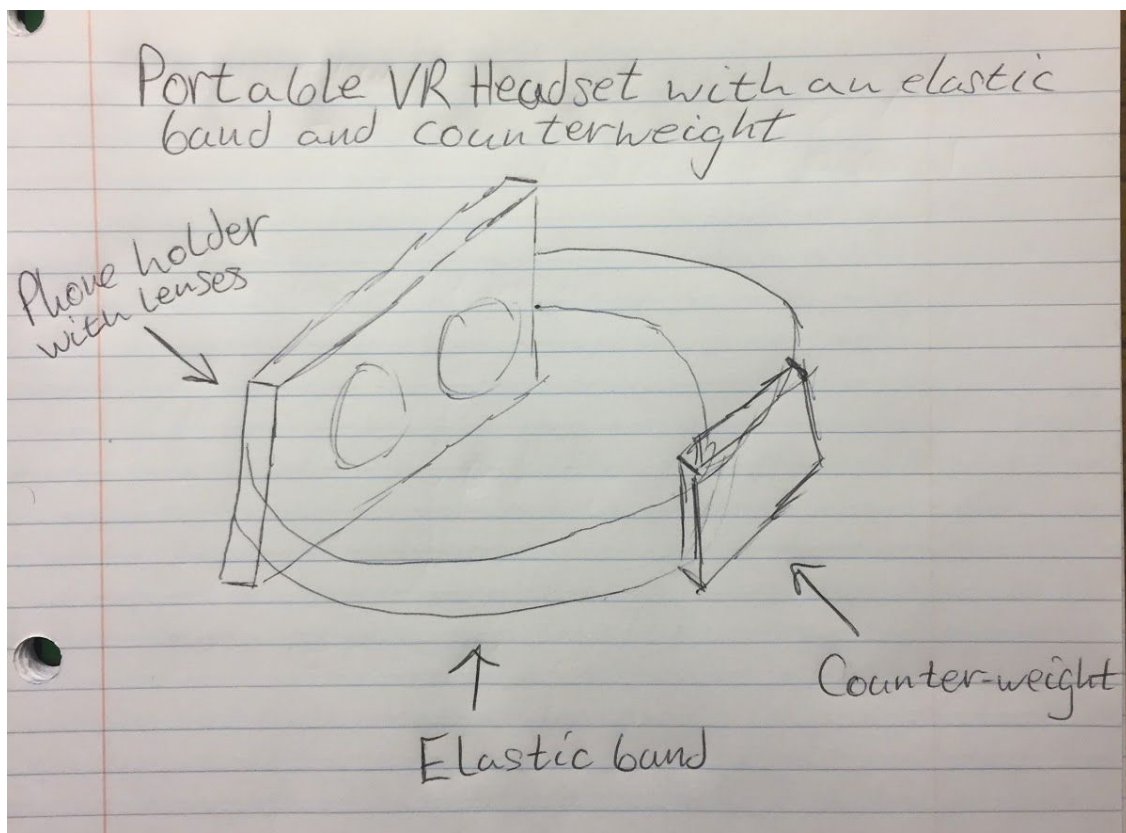 Portable VR Headset with an elastic
band and counterweight
Phone holder
with lenses
Counter-weight
Elastic band